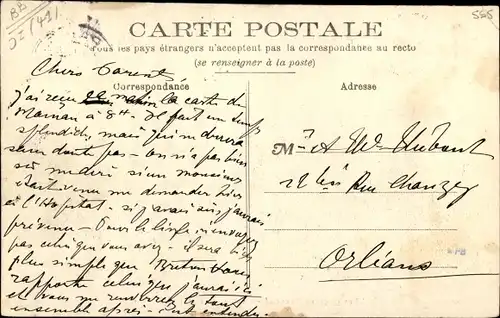 CARTE POSTALE
Tous les pays étrangers n'acceptent pas la correspondance au recto
(se renseigner à la poste)
Correspondance
Adresse
Chers Parents
J'ai reçu ce matin la carte de
Maman à 8H. Il fait un temps
splendide, mais qui ne durera
sans doute pas - On n'a pas bien
su me dire si un monsieur
était venu me demander hier
à l'Hopital - si j'avais su j'aurais
prévenu - Pour le linge n'envoyez
pas celui que vous avez - il sera bien
plus simple que
rapporte celui que j'aurai ici
et vous me renverrez le tout
ensemble après - c'est entendu
M à Me Hubert
22 bis Rue Chanzy
Orléans